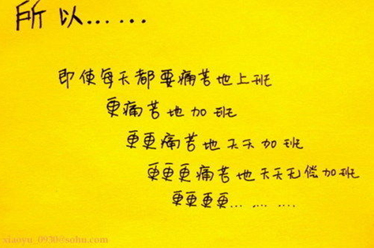 所以……
即使每天都要痛苦地上班
更痛苦地加班
更更痛苦地天天加班
更更更痛苦地天天无偿加班
更更更更… … …
xiaoyu_0930@sohu.com